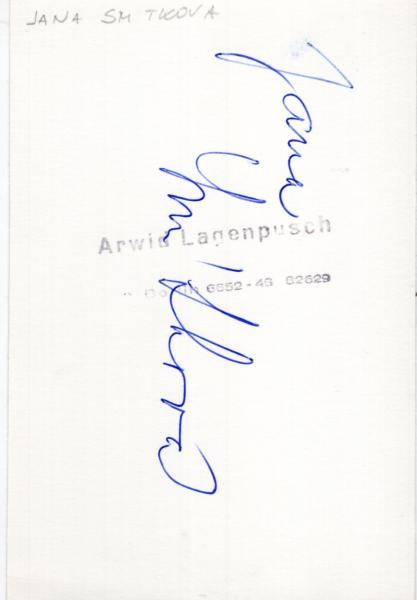 JANA SMITKOVA
Jana
Smítková
Arwid Lagenpusch
6652-49 82629